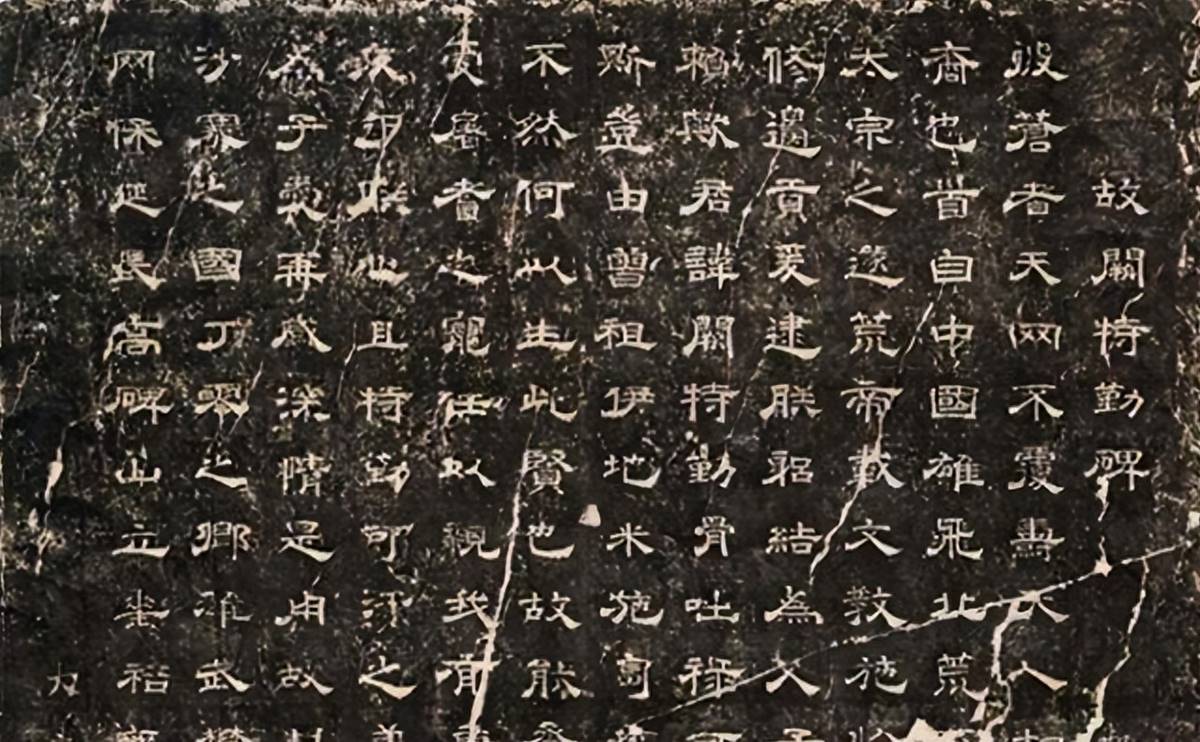 故闕特勤碑
彼蒼者天网不覆燾人
裔也首自中國雄飛北荒
太宗之遂荒帝載文教施
修邊貢爰逮朕躬結為父子
賴歟君諱闕特勤骨吐祿可
斯豈由曾祖伊地米施匐
不然何以生此賢也故能
屠耆之寵任以親我有
朕心且特勤可汗之弟
子義再感深情是用故
沙塞之國丁零之鄉雄武
网保延長高碑山立垂裕